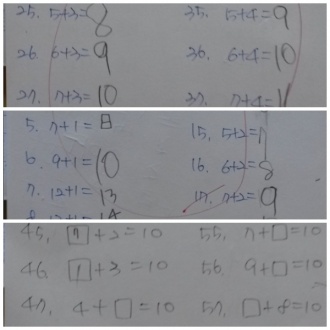 25. 5+3=8 35. 5+4=9
26. 6+3=9 36. 6+4=10
27. 7+3=10 37. 7+4=11
5. 7+1=8 15. 5+2=7
6. 9+1=10 16. 6+2=8
7. 12+1=13 17. 7+2=9
45. 7+2=10 55. 7+□=10
46. 1+3=10 56. 9+□=10
47. 4+□=10 57. □+8=10